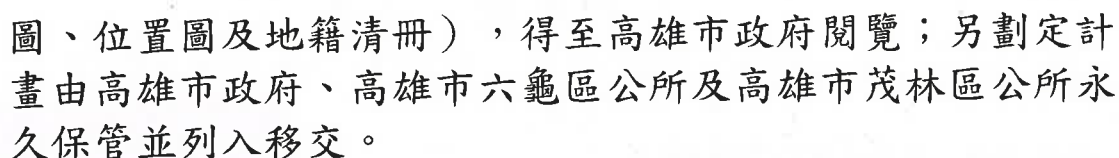 圖、位置圖及地籍清冊），得至高雄市政府閱覽；另劃定計
畫由高雄市政府、高雄市六龜區公所及高雄市茂林區公所永
久保管並列入移交。